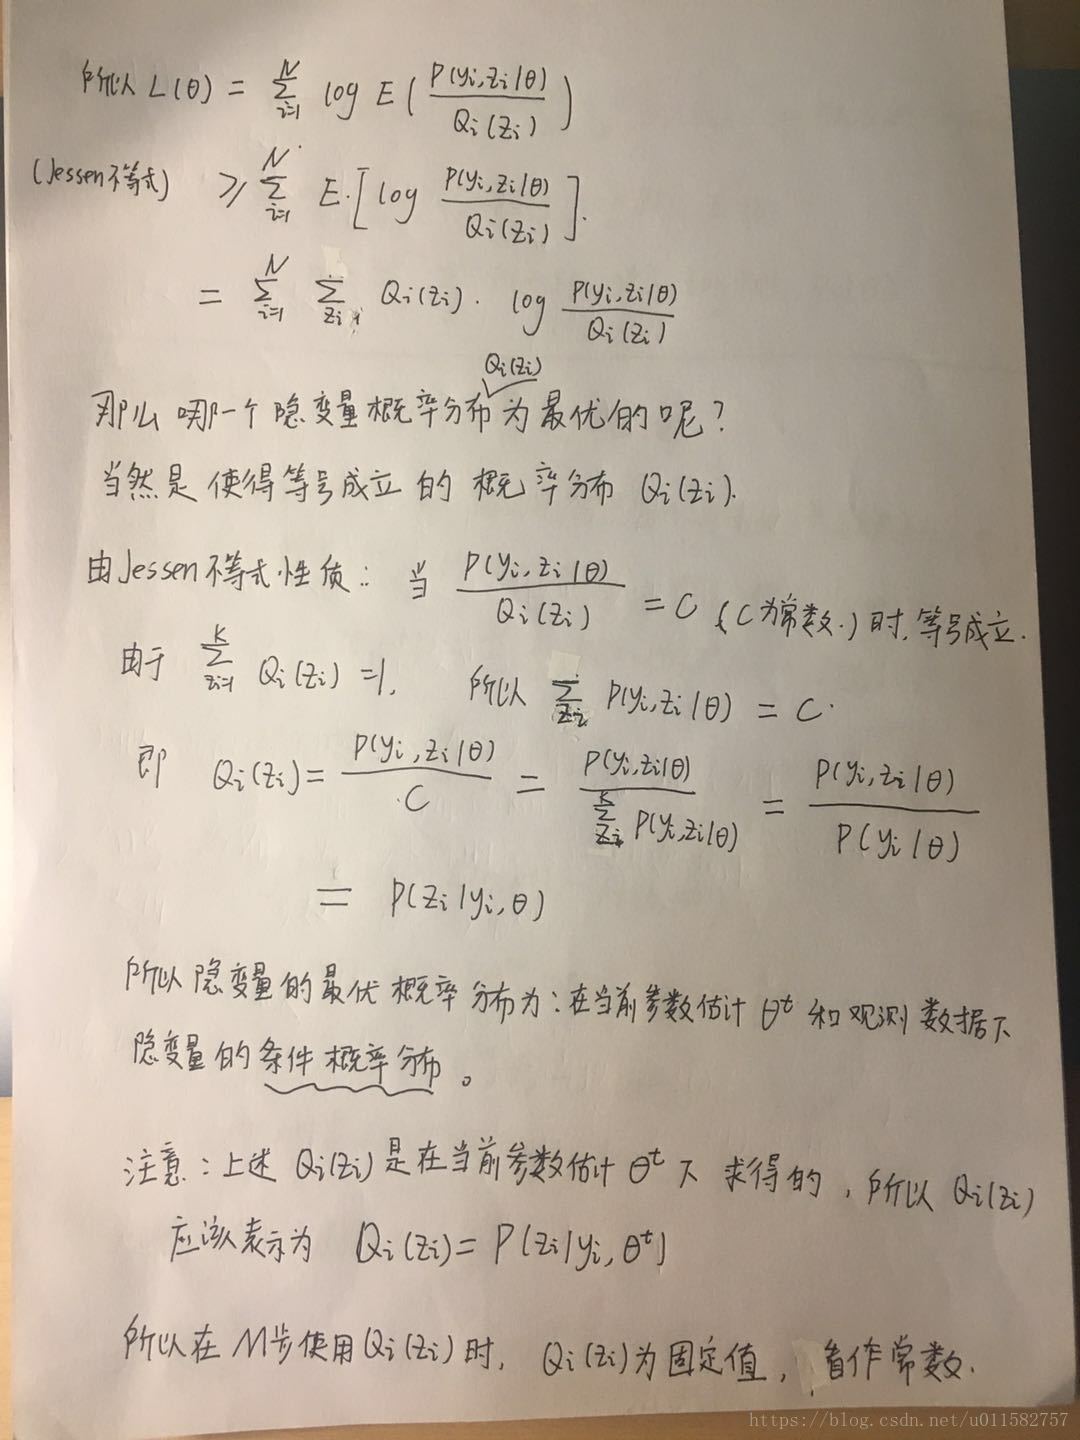 所以 L(θ) = ∑_{i=1}^{N} log E ( P(yi,zi|θ) / Qi(zi) )
(Jessen不等式) ≥ ∑_{i=1}^{N} E·[ log P(yi,zi|θ) / Qi(zi) ].
= ∑_{i=1}^{N} ∑_{zi} Qi(zi) · log P(yi,zi|θ) / Qi(zi)
Qi(zi)
那么哪一个隐变量概率分布为最优的呢?
当然是使得等号成立的概率分布 Qi(zi).
由Jessen不等式性质: 当 P(yi,zi|θ) / Qi(zi) = C (C为常数.)时,等号成立.
由于 ∑_{zi=1}^{K} Qi(zi) =1, 所以 ∑_{zi} P(yi,zi|θ) = C.
即 Qi(zi) = P(yi,zi|θ) / C = P(yi,zi|θ) / ∑_{zi}^{K} P(yi,zi|θ) = P(yi,zi|θ) / P(yi|θ)
= P(zi|yi,θ)
所以隐变量的最优概率分布为:在当前参数估计 θ^t 和观测数据下
隐变量的条件概率分布。
注意:上述 Qi(zi)是在当前参数估计 θ^t 下 求得的,所以 Qi(zi)
应该表示为 Qi(zi)= P(zi|yi,θ^t)
所以在M步使用Qi(zi)时, Qi(zi)为固定值, 看作常数.
https://blog.csdn.net/u011582757